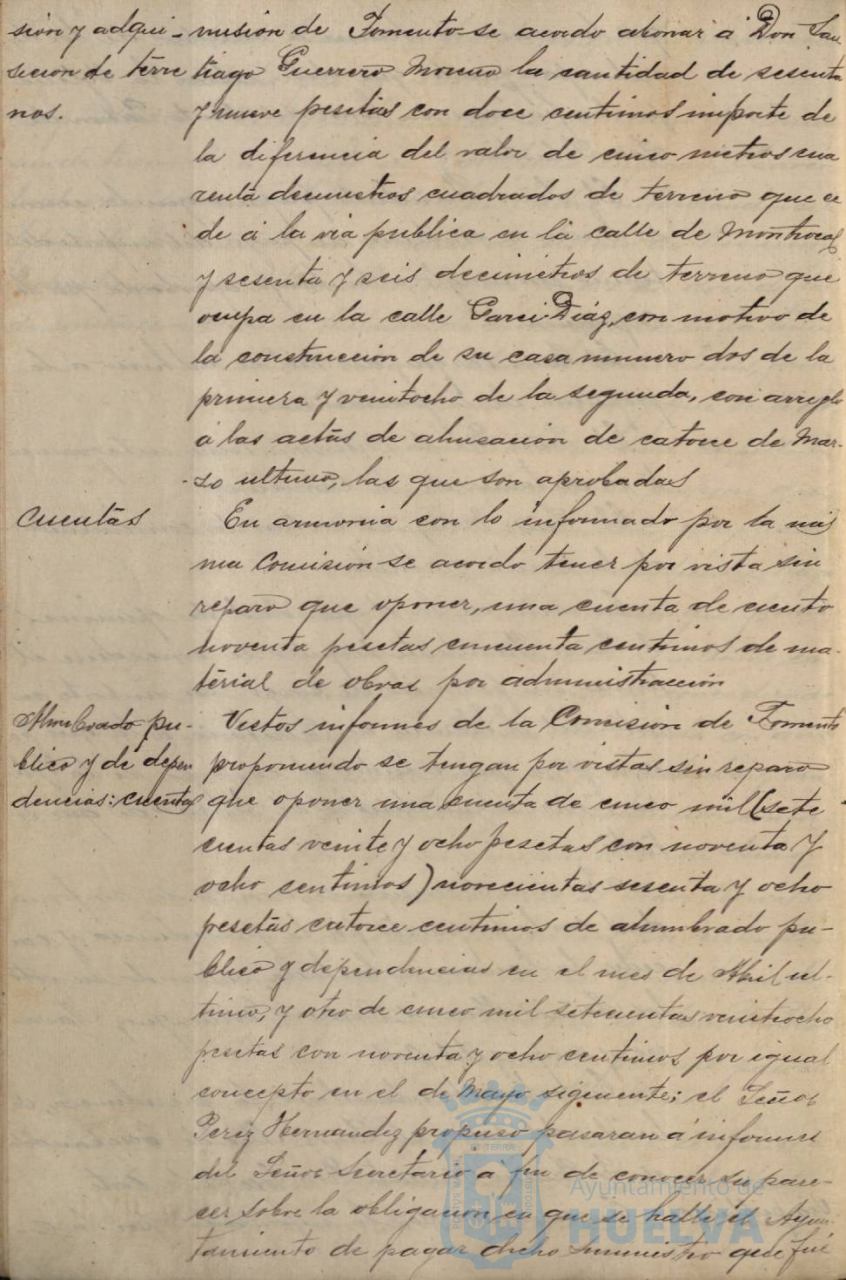 sión y adqui-
sicion de térre
nos.
misión de Fomento se acordo abonar á Don San
tiago Guerrero Moreno la cantidad de sesenta
y nueve pesetas con doce centimos importe de
la diferencia del valor de cinco metros cua
renta decimetros cuadrados de terreno que ce
de á la via publica en la calle de Montrocal
y sesenta y seis decimetros de terreno que
ocupa en la calle Garci-Diáz, con motivo de
la construcción de su casa numero dos de la
primera y veintocho de la segunda, con arreglo
á las actas de alineación de catorce de Mar-
zo ultimo, las que son aprobadas
Cuentas
En armonia con lo informado por la mis
ma Comisión se acordo tener por vista sin
reparo que oponer, una cuenta de ciento
noventa pesetas cincuenta centimos de ma-
térial de obras por administracción
Alumbrado pu-
blico y de depen
dencias: cuentas
Vistos informes de la Comisión de Fomento
proponiendo se tengan por vistas sin reparo
que oponer una cuenta de cinco mil (sete
cientas veinte y ocho pesetas con noventa y
ocho sentimos) novecientas sesenta y ocho
pesetas catorce centimos de alumbrado pu-
blico y dependencias en el mes de Abril ul-
timo, y otro de cinco mil setecientas veintiocho
pesetas con noventa y ocho centimos por igual
concepto en el de Mayo siguiente; el Señor
Perez Hernandez propuso pasaran á informe
del Señor Secretario a fin de conocer su pare-
cer sobre la obligación en que se halle el Ayun
tamiento de pagar dicho suministro que fué
Ayuntamiento de
HUELVA